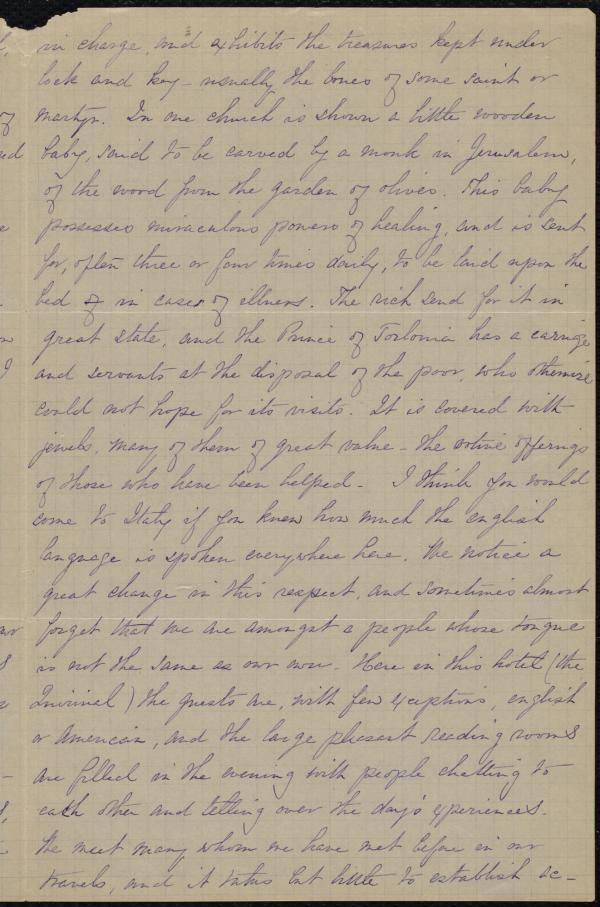 in charge, and exhibits the treasures kept under
lock and key - usually the bones of some saint or
martyr. In one church is shown a little wooden
baby, said to be carved by a monk in Jerusalem,
of the wood from the garden of olives. This baby
possesses miraculous powers of healing, and is sent
for, often three or four times daily, to be laid upon the
bed in cases of illness. The rich send for it in
great state, and the Prince of Torlonia has a carriage
and servants at the disposal of the poor, who otherwise
could not hope for its visits. It is covered with
jewels, many of them of great value - the votive offerings
of those who have been helped - I think you would
come to Italy if you knew how much the english
language is spoken everywhere here. We notice a
great change in this respect, and sometimes almost
forget that we are amongst a people whose tongue
is not the same as our own. Here in this hotel (the
Quirinal) the guests are, with few exceptions, english
or American, and the large pleasant reading rooms
are filled in the evening with people chatting to
each other and telling over the day's experiences.
We meet many whom we have met before in our
travels, and it takes but little to establish ac-